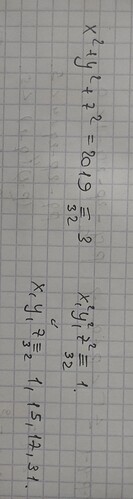 x²+y²+z² = 2019 ≡₃₂ 3
x²,y²,z² ≡₃₂ 1.
x,y,z ≡₃₂ 1,15,17,31.